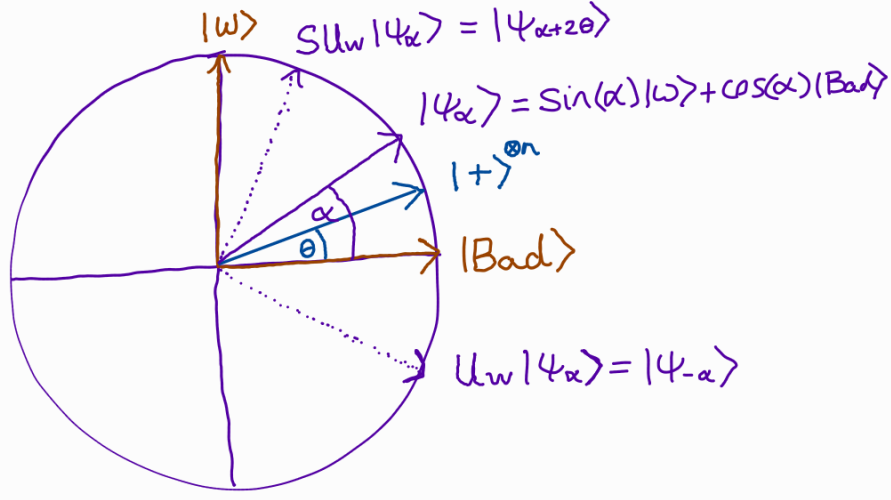 |w⟩
SU_w|ψ_α⟩ = |ψ_{α+2θ}⟩
|ψ_α⟩ = Sin(α)|w⟩+cos(α)|Bad⟩
|+⟩^{⊗n}
α
θ
|Bad⟩
U_w|ψ_α⟩=|ψ_{-α}⟩